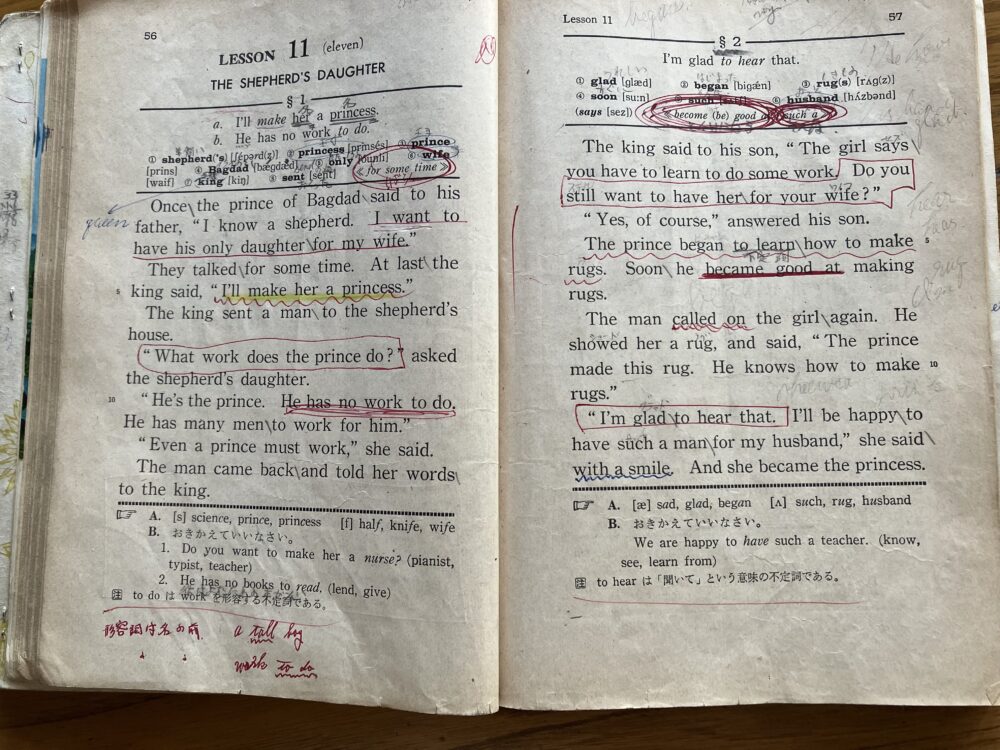 56
LESSON 11 (eleven)
THE SHEPHERD'S DAUGHTER
§ 1
a. I'll make her a princess.
b. He has no work to do.
① shepherd('s) [ʃépərd(z)] ② princess [prinsés] ③ prince
[prins] ④ Bagdad [bægdæd] ⑤ only [óunli] ⑥ wife
[waif] ⑦ king [kiŋ] ⑧ sent [sent] 《for some time》
Once the prince of Bagdad said to his
father, “I know a shepherd. I want to
have his only daughter for my wife.”
They talked for some time. At last the
5 king said, “I'll make her a princess.”
The king sent a man to the shepherd's
house.
“What work does the prince do?” asked
the shepherd's daughter.
10 “He's the prince. He has no work to do.
He has many men to work for him.”
“Even a prince must work,” she said.
The man came back and told her words
to the king.
☞ A. [s] science, prince, princess [f] half, knife, wife
B. おきかえていいなさい。
1. Do you want to make her a nurse? (pianist,
typist, teacher)
2. He has no books to read. (lend, give)
注 to do は work を形容する不定詞である。
a tall boy
work to do
Lesson 11 57
§ 2
I'm glad to hear that.
① glad [glæd] ② began [bigǽn] ③ rug(s) [rʌg(z)]
④ soon [su:n] ⑤ such ⑥ husband [hʌ́zbənd]
(says [sez]) 《become (be) good a 》 such a
The king said to his son, “The girl says
you have to learn to do some work. Do you
still want to have her for your wife?”
“Yes, of course,” answered his son.
The prince began to learn how to make 5
rugs. Soon he became good at making
rugs.
The man called on the girl again. He
showed her a rug, and said, “The prince
made this rug. He knows how to make 10
rugs.”
“I'm glad to hear that. I'll be happy to
have such a man for my husband,” she said
with a smile. And she became the princess.
☞ A. [æ] sad, glad, began [ʌ] such, rug, husband
B. おきかえていいなさい。
We are happy to have such a teacher. (know,
see, learn from)
注 to hear は「聞いて」という意味の不定詞である。